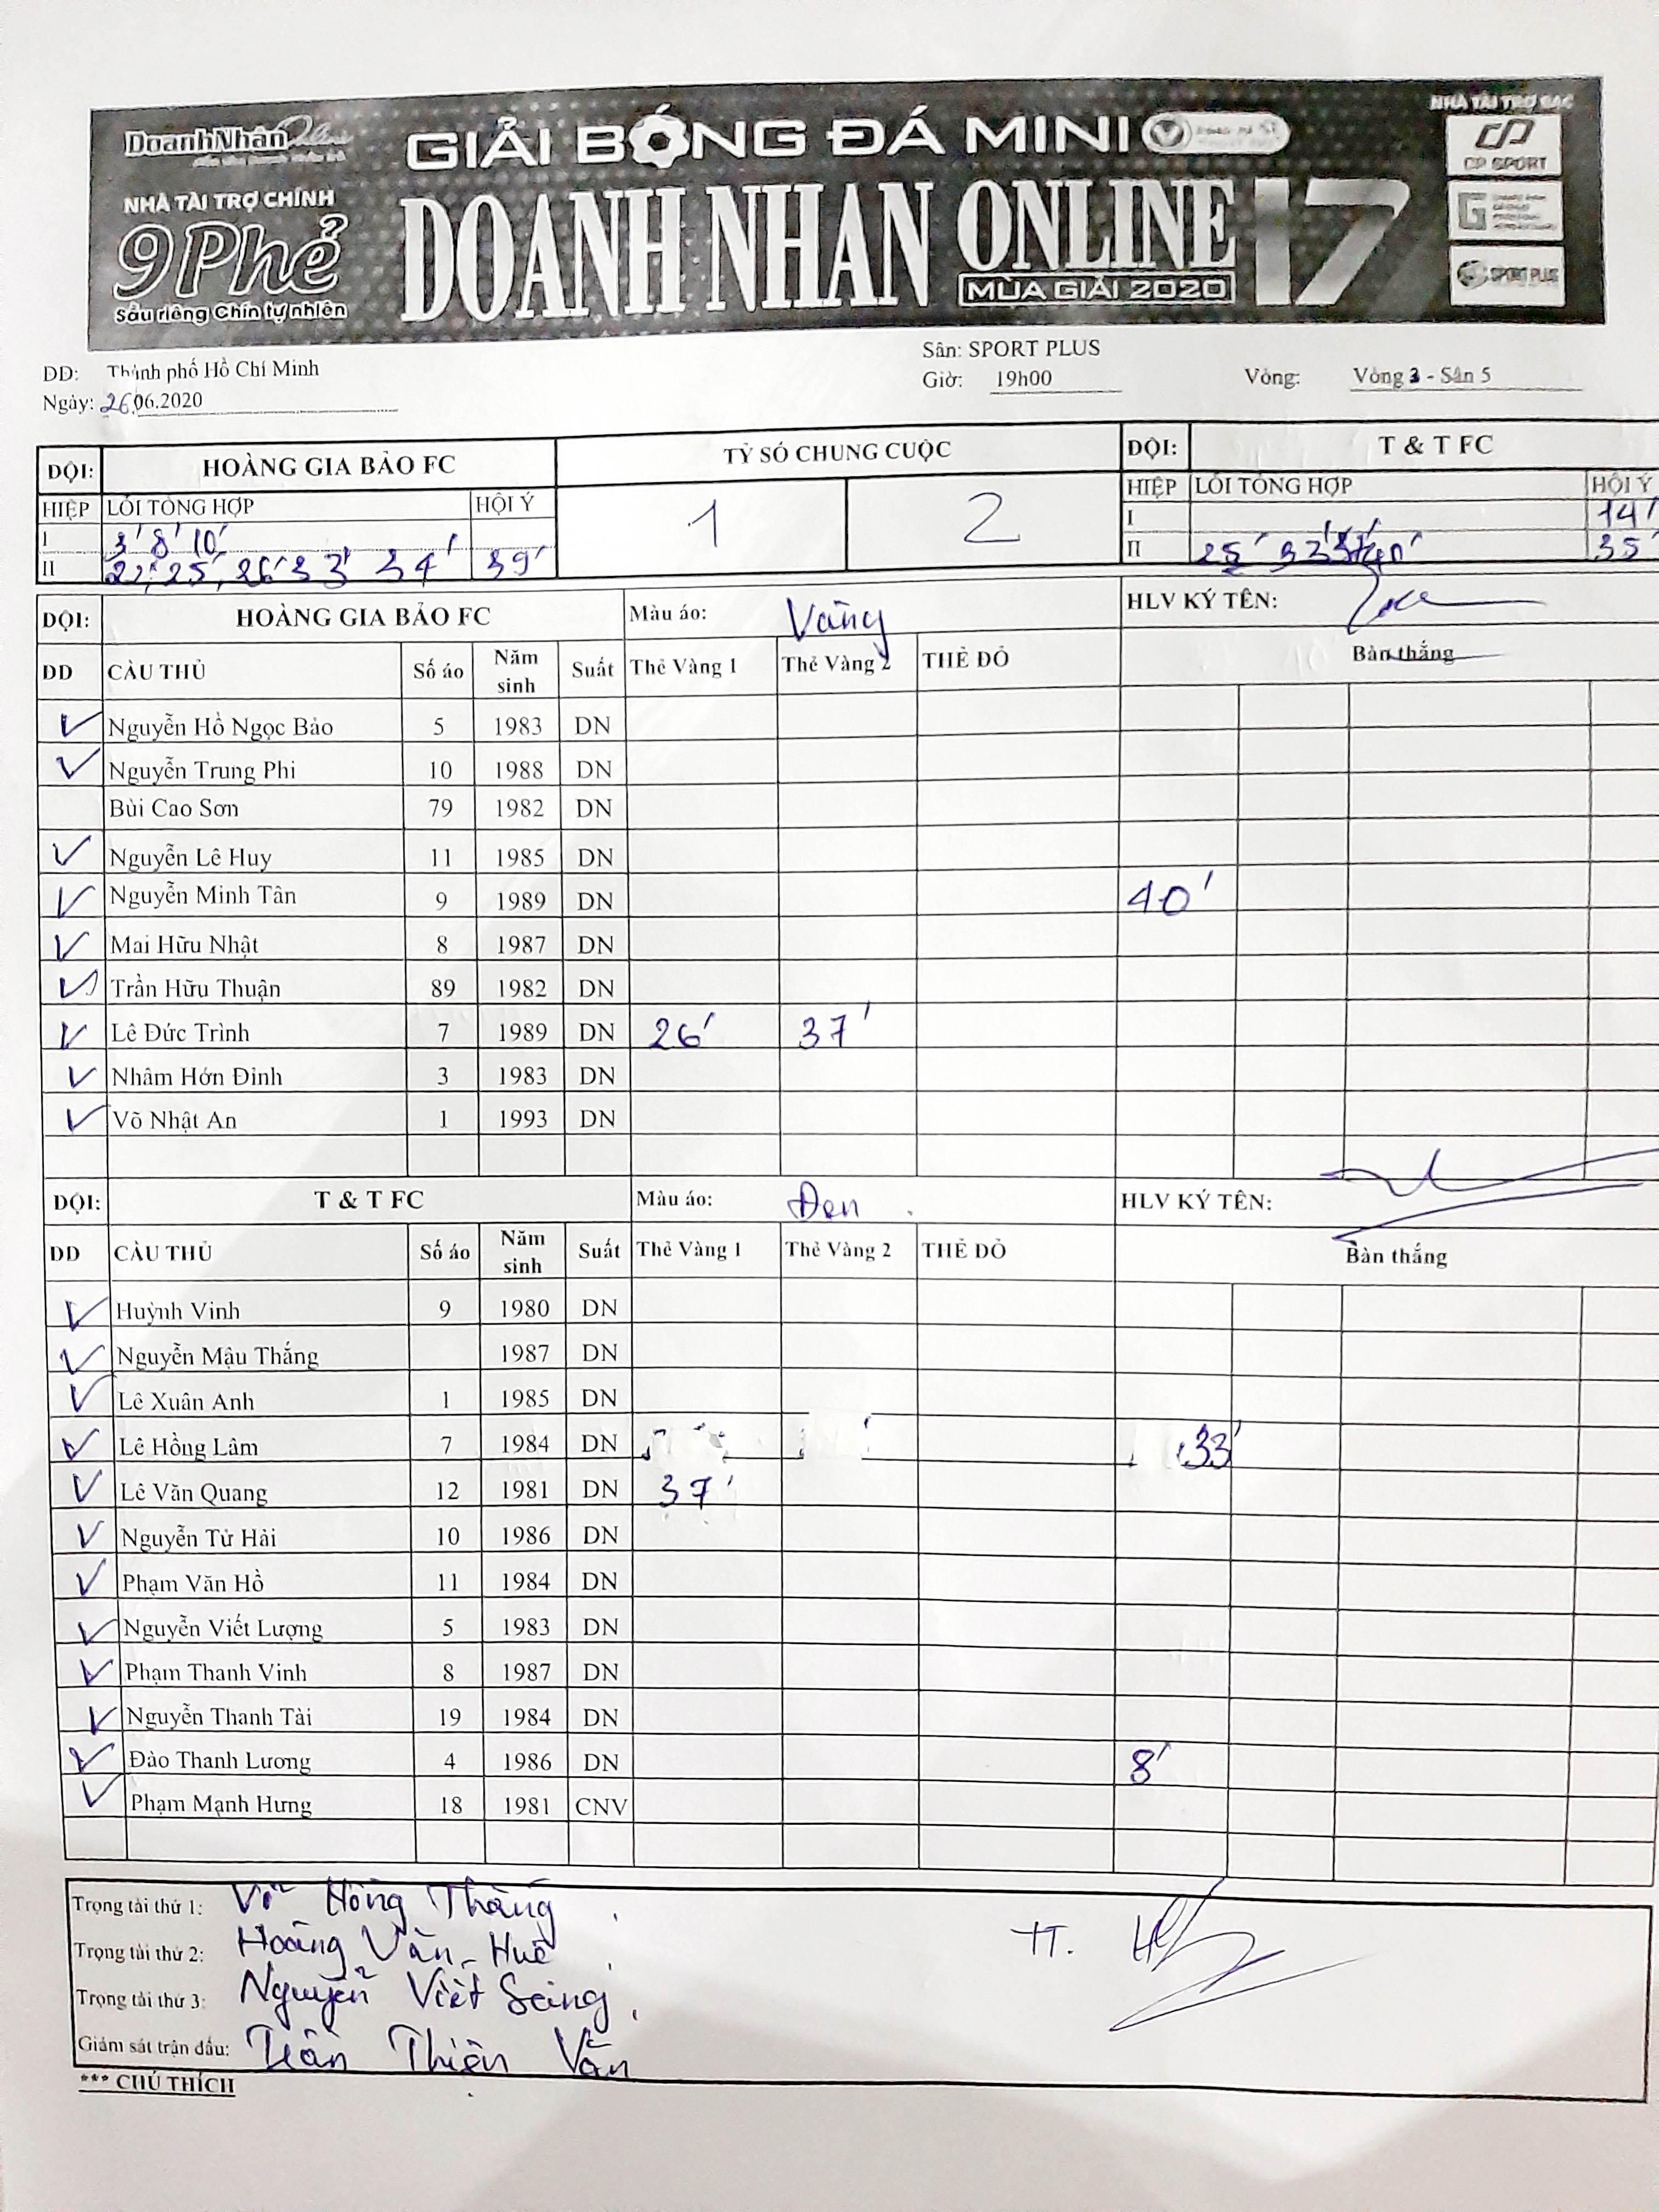 DoanhNhân Online
NHÀ TÀI TRỢ CHÍNH
9 Phẻ
Sầu riêng Chín tự nhiên
GIẢI BÓNG ĐÁ MINI
DOANH NHÂN ONLINE 17
MÙA GIẢI 2020
NHÀ TÀI TRỢ BẠC
CP SPORT
SPORT PLUS
DD: Thành phố Hồ Chí Minh
Sân: SPORT PLUS
Ngày: 26.06.2020
Giờ: 19h00
Vòng: Vòng 3 - Sân 5
ĐỘI: HOÀNG GIA BẢO FC TỶ SỐ CHUNG CUỘC ĐỘI: T & T FC
HIỆP LỖI TỔNG HỢP HỘI Ý 1 2 HIỆP LỖI TỔNG HỢP HỘI Ý
I 3' 8' 10' I 14'
II 22' 25' 26' 33' 34' 39' II 25' 33' 40' 35'
ĐỘI: HOÀNG GIA BẢO FC Màu áo: Vàng HLV KÝ TÊN:
DD CẦU THỦ Số áo Năm sinh Suất Thẻ Vàng 1 Thẻ Vàng 2 THẺ ĐỎ Bàn thắng
Nguyễn Hồ Ngọc Bảo 5 1983 DN
Nguyễn Trung Phi 10 1988 DN
Bùi Cao Sơn 79 1982 DN
Nguyễn Lê Huy 11 1985 DN
Nguyễn Minh Tân 9 1989 DN 40'
Mai Hữu Nhật 8 1987 DN
Trần Hữu Thuận 89 1982 DN
Lê Đức Trình 7 1989 DN 26' 37'
Nhâm Hớn Đình 3 1983 DN
Võ Nhật An 1 1993 DN
ĐỘI: T & T FC Màu áo: Đen HLV KÝ TÊN:
DD CẦU THỦ Số áo Năm sinh Suất Thẻ Vàng 1 Thẻ Vàng 2 THẺ ĐỎ Bàn thắng
Huỳnh Vinh 9 1980 DN
Nguyễn Mậu Thắng 1987 DN
Lê Xuân Anh 1 1985 DN
Lê Hồng Lâm 7 1984 DN 33'
Lê Văn Quang 12 1981 DN 37'
Nguyễn Từ Hải 10 1986 DN
Phạm Văn Hồ 11 1984 DN
Nguyễn Viết Lượng 5 1983 DN
Phạm Thanh Vinh 8 1987 DN
Nguyễn Thanh Tài 19 1984 DN
Đào Thanh Lương 4 1986 DN 8'
Phạm Mạnh Hưng 18 1981 CNV
Trọng tài thứ 1: Võ Hồng Thắng
Trọng tài thứ 2: Hoàng Văn Huê TT.
Trọng tài thứ 3: Nguyễn Viết Sáng
Giám sát trận đấu: Trần Thiện Văn
*** CHÚ THÍCH